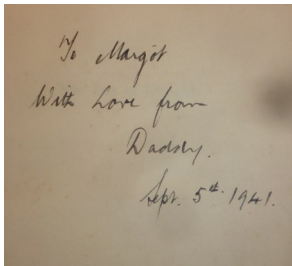 To Margot
With Love from
Daddy.
Sept. 5th 1941.